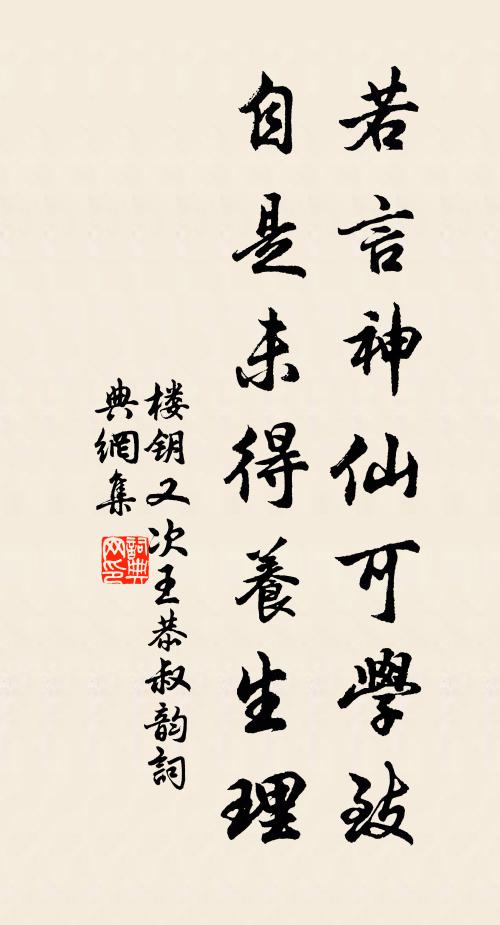 若言神仙可學致
自是未得養生理
楼钥又次王恭叔韵詞
典網集
詞典網印